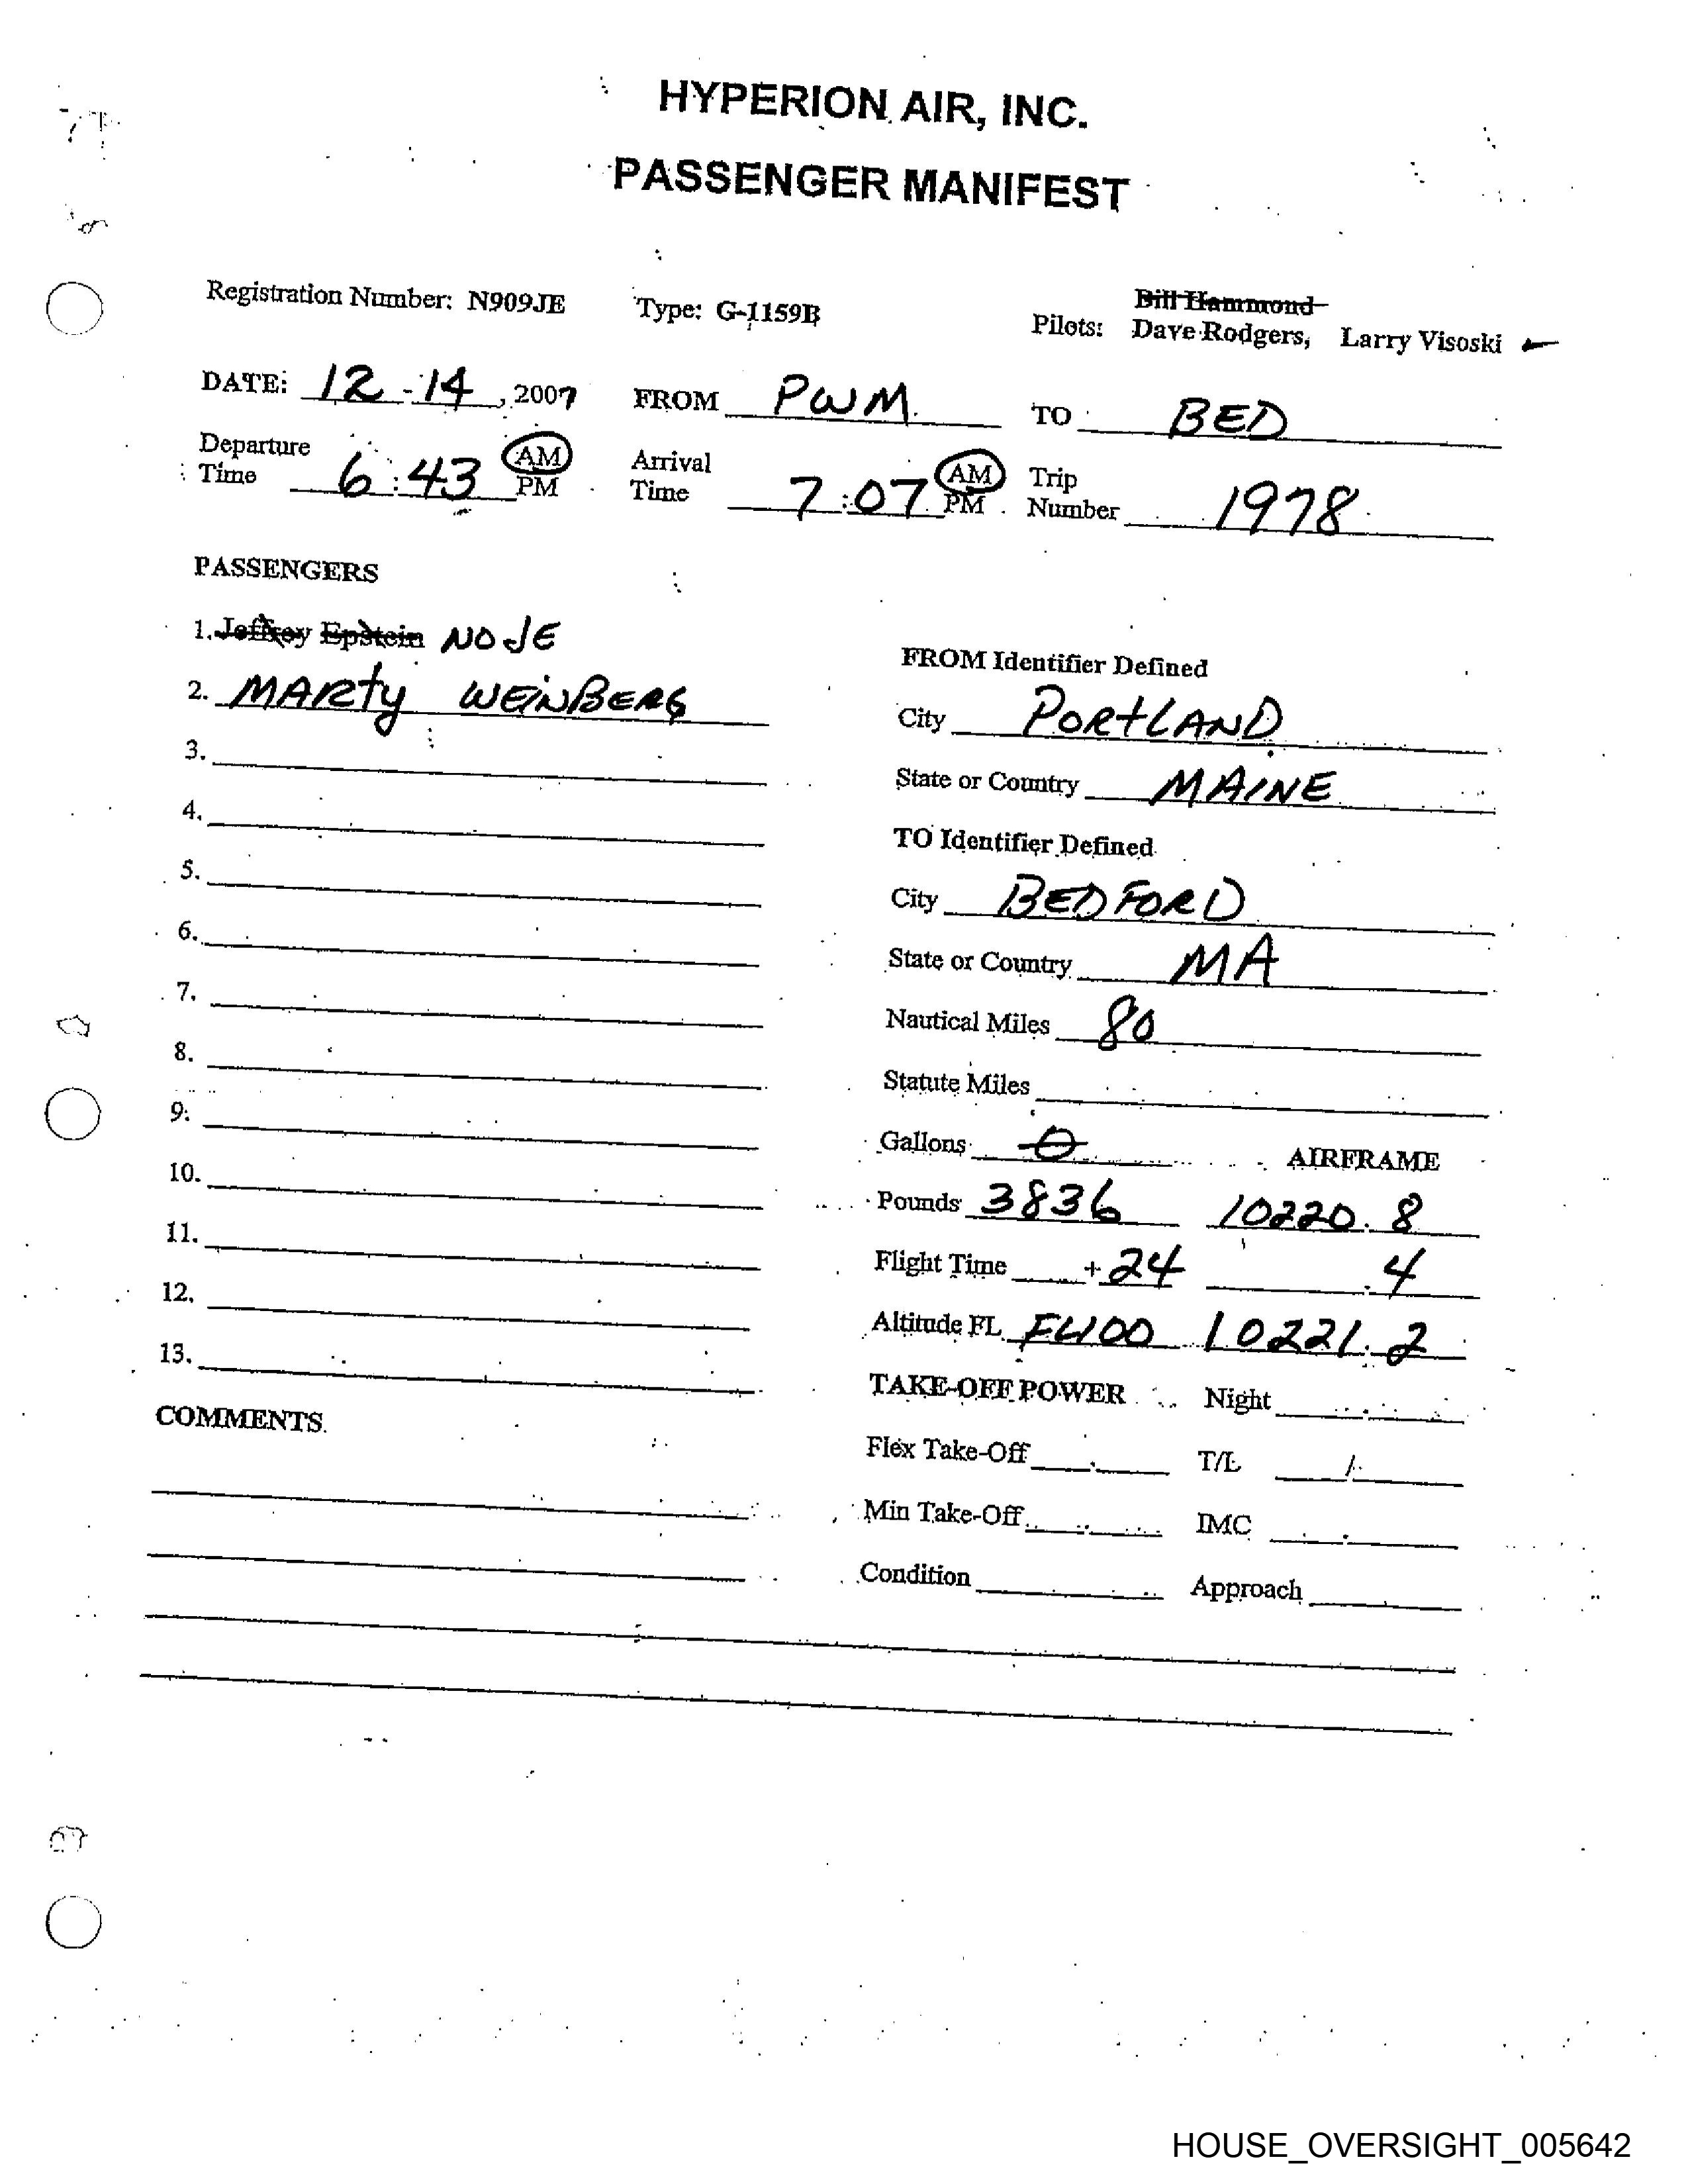 HYPERION AIR, INC.
PASSENGER MANIFEST
Registration Number: N909JE Type: G-1159B Bill Hammond
Pilots: Dave Rodgers, Larry Visoski
DATE: 12 - 14, 2007 FROM PWM TO BED
Departure Time 6:43 AM PM Arrival Time 7:07 AM PM Trip Number 1978
PASSENGERS
1. Jeffrey Epstein NO JE
FROM Identifier Defined
2. MARty WEiNBERG
City PORtLAND
3.
State or Country MAINE
4.
TO Identifier Defined
5.
City BEDFORD
6.
State or Country MA
7.
Nautical Miles 80
8.
Statute Miles
9.
Gallons 0 AIRFRAME
10.
Pounds 3836 10220.8
11.
Flight Time +24 .4
12.
Altitude FL FL100 10221.2
13.
TAKE-OFF POWER Night
COMMENTS
Flex Take-Off T/L /
Min Take-Off IMC
Condition Approach
HOUSE_OVERSIGHT_005642